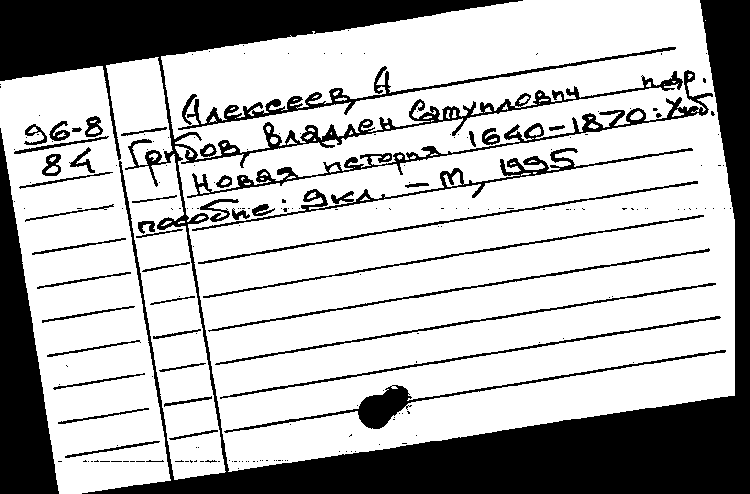 Алексеев, А
96-8
84
Грибов, Владлен Сатуилович
Новая история. 1640-1870: Учеб.
пособие: 9 кл. - М., 1995